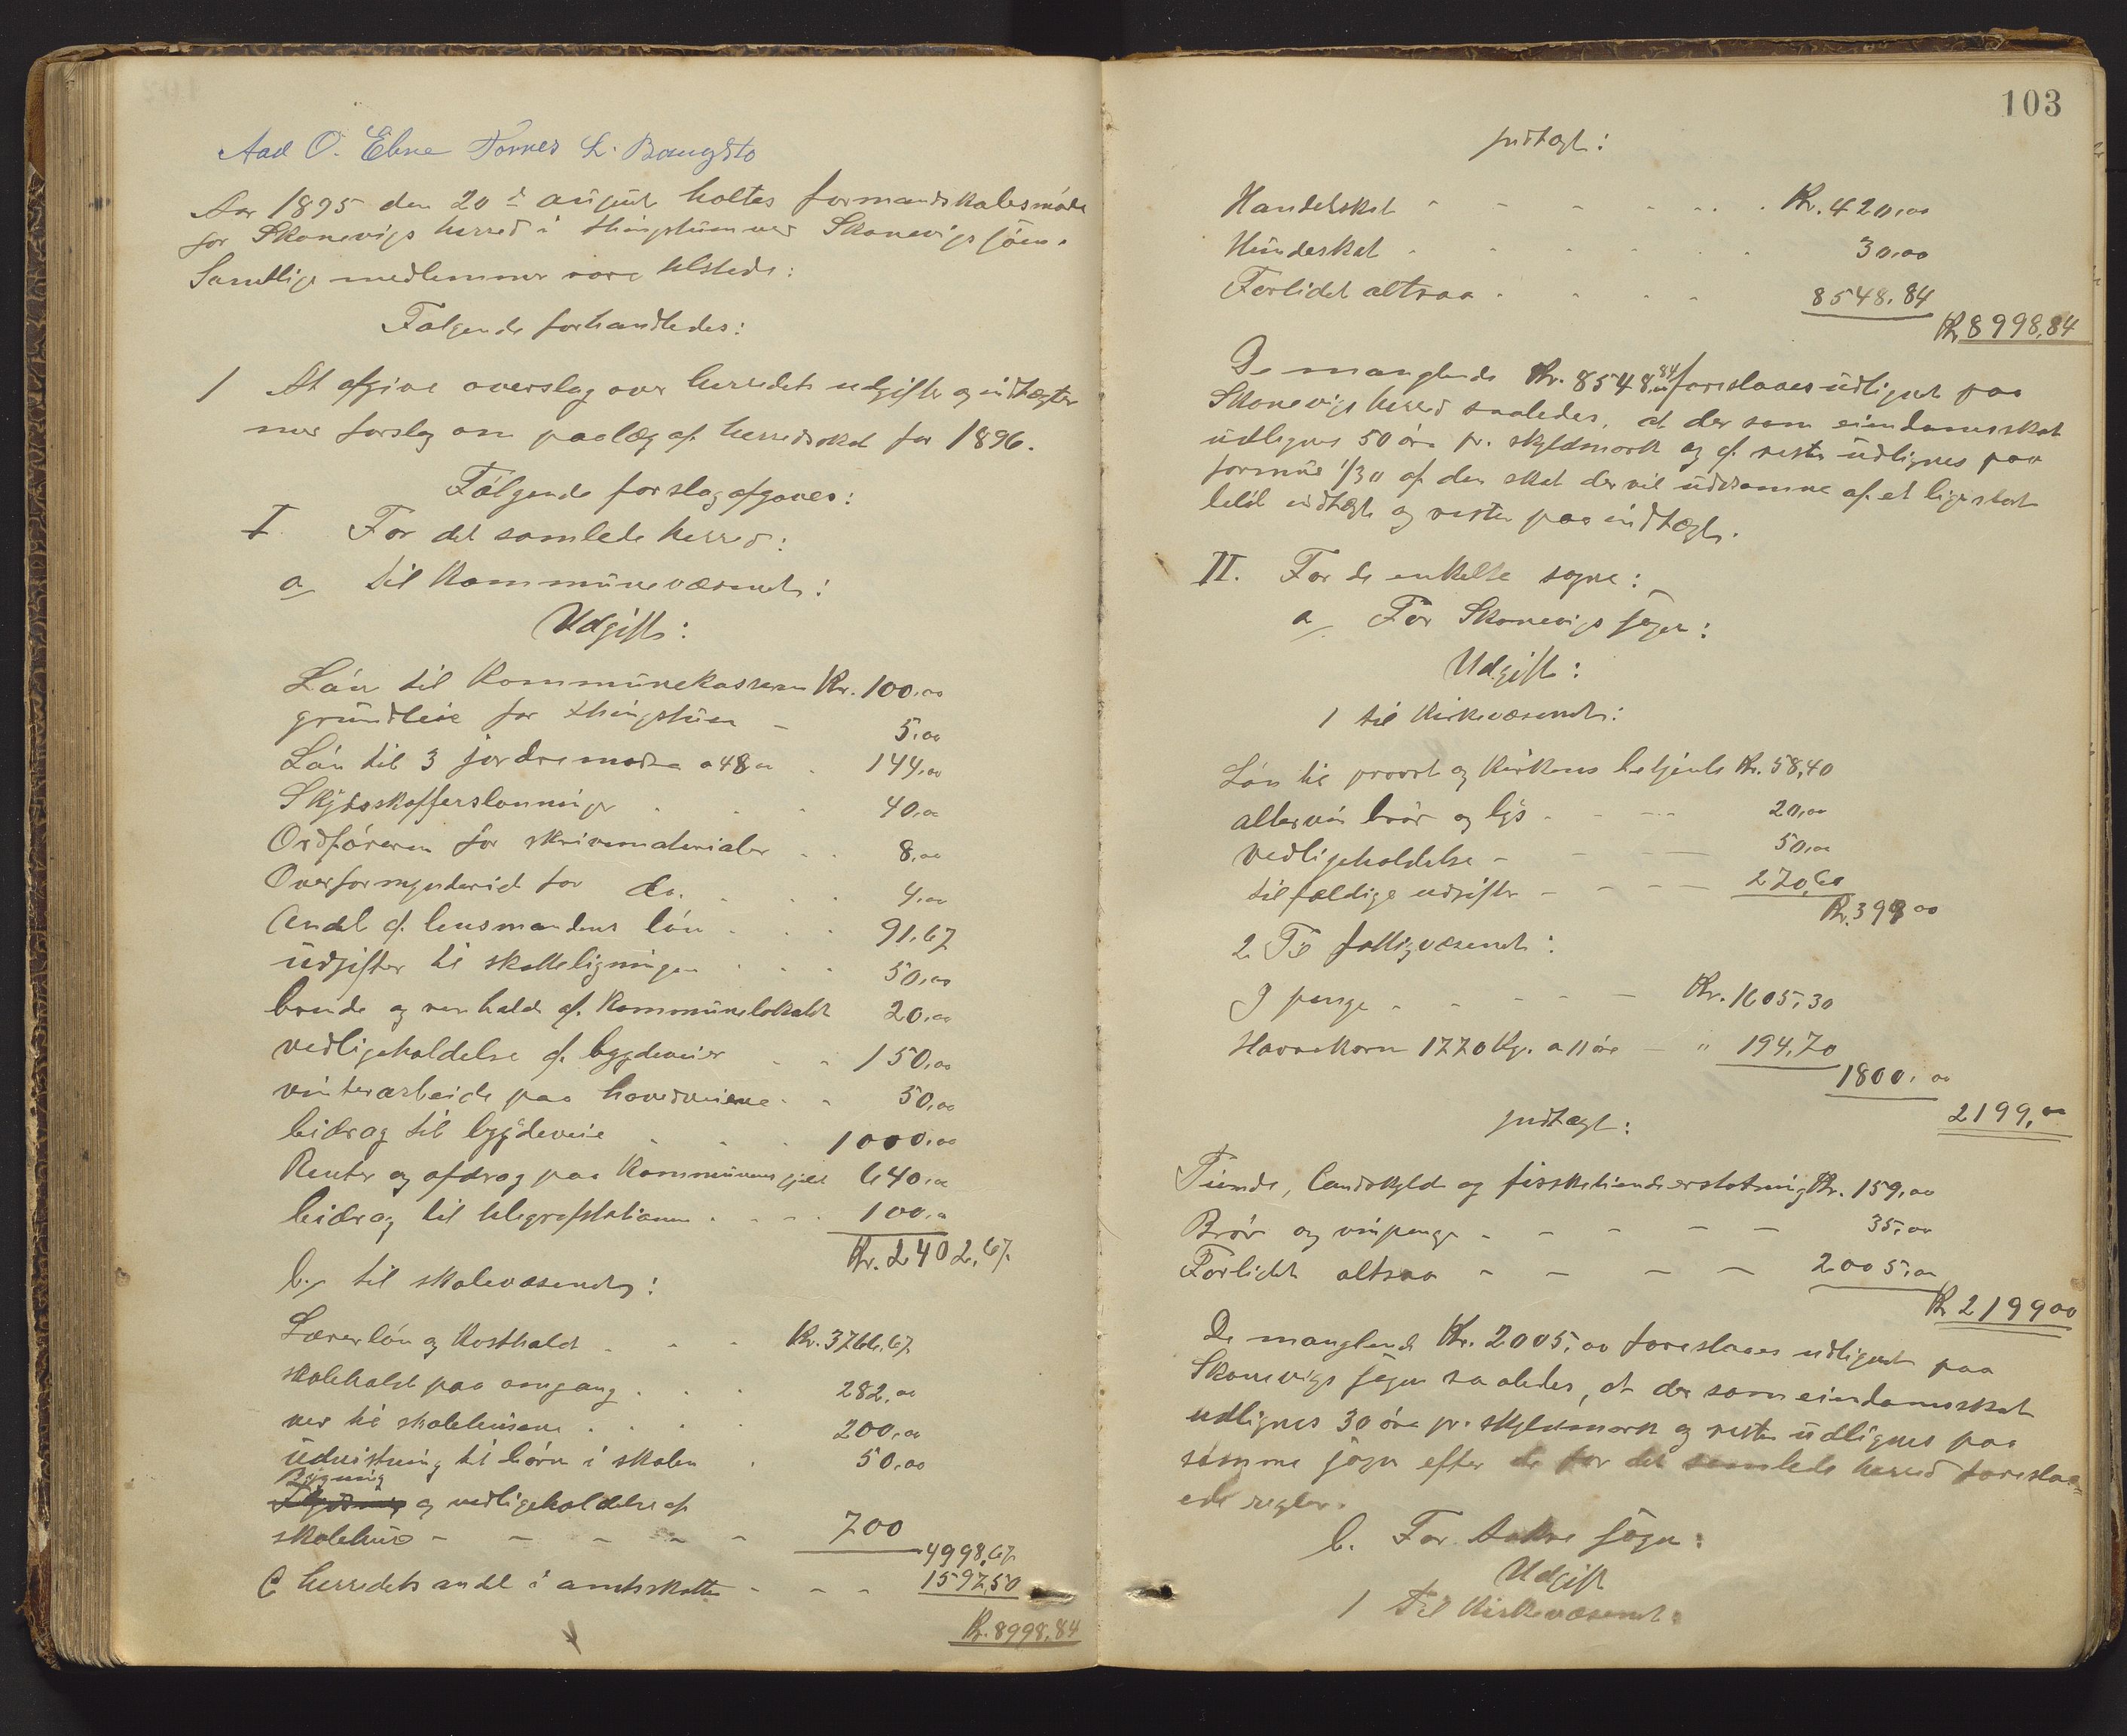 Aad O. Ebne Tornes L. Baugsto
Aar 1895 den 20de august holtes formandskabsmøde
for Skonevigs herred i thingstuen ved Skonevigsjøen.
Samtlige medlemmer vare tilstede:
Følgende forhandledes:
1 At afgive overslag over herredets udgifter og indtægter
med forslag om paalæg af herredsskat for 1896.
Følgende forslag afgaves:
I. For det samlede herred:
a, til kommunevæsenet:
Udgift:
Løn til kommunekasseren Kr. 100,00
grundleie for thingstuen - 5,00
Løn til 3 jordemødre a 48 00 . 144,00
Skydsskafferslønninger . . 40,00
Ordføreren for skrivematerialer . . 8,00
Overformynderiet for do. . . . 4,00
Andel af lensmandens løn . . . 91,67
udgifter til skatteligningen . . . 50,00
brænde og renhold af kommunelokalet 20,00
vedligeholdelse af bygdeveier . . 150,00
vinterarbeide paa hovedveiene . . 50,00
bidrag til bygdeveie . . . 1000,00
Renter og afdrag paa kommunens gjeld 640,00
bidrag til telegrafstationen . . . 100,00
Kr. 2402,67
b., til skolevæsenet:
Lærerløn og kosthold . . . Kr. 3766,67
skolehold paa omgang . . . 282,00
ved til skolehusene . . . . 200,00
undervisning til børn i skolen . 50,00
Bygning
og vedligeholdelse af
skolehus - - - - - 700
4998,67
C herredets andel i amtsskatten - - - 1597,50
Kr. 8998,84
103
Indtægt:
Handelskat - - - - - . . . Kr. 420,00
Hundeskat . . . . . . . 30,00
Forlidet altsaa . . . . 8548,84
Kr 8998,84
De manglende Kr. 8548,84 foreslaaes udlignet paa
Skonevigs herred saaledes, at der som eiendomsskat
udlignes 50 øre pr. skyldmark og af resten udlignes paa
formue 1/30 af den skat der vil udkomme af et ligestort
beløb indtægt og resten paa indtægt.
II. For de enkelte sogne:
a, For Skonevigs sogn:
Udgift:
1 til kirkevæsenet:
Løn til provst og kirkens betjente Kr. 58,40
altervin brød og lys - - - - 20,00
vedligeholdelse - - - 50,00
tilfældige udgifter - - - - 270,60
Kr. 399 00
2 Til fattigvæsenet:
I penge - - - - - Kr. 1605,30
Havrekorn 1770 Kg. a 11 øre - " 194,70
1800,00
2199,00
Indtægt:
Tiende, landskyld og fisketiendeerstatning Kr. 159,00
Brød og vinpenge - - - - - 35,00
Forlidet altsaa - - - - 2005,00
Kr 2199 00
De manglende Kr. 2005,00 foreslaaes udlignet paa
Skonevigs sogn saaledes, at der som eiendomsskat
udlignes 30 øre pr. skyldmark og resten udlignes paa
samme sogn efter de for det samlede herred foreslaa=
ede regler.
b. For Aakre sogn:
Udgift
1 til kirkevæsenet: